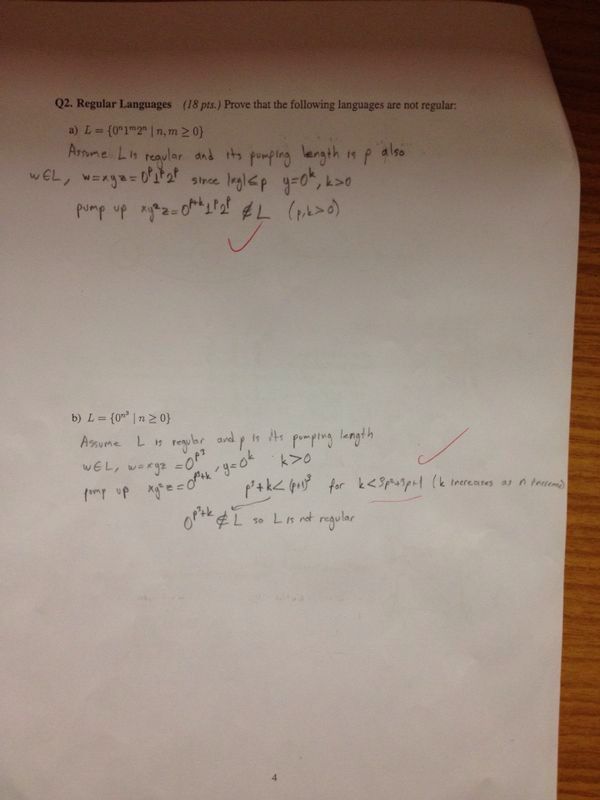 Q2. Regular Languages (18 pts.) Prove that the following languages are not regular:
a) L = {0ⁿ1ᵐ2ⁿ | n, m ≥ 0}
Assume L is regular and its pumping length is p also
w∈L, w=xyz=0ᵖ1ᵖ2ᵖ since |xy|≤p y=0ᵏ, k>0
pump up xy²z=0ᵖ⁺ᵏ1ᵖ2ᵖ ∉ L (p,k>0)
b) L = {0^n³ | n ≥ 0}
Assume L is regular and p is its pumping length
w∈L, w=xyz =0^p³, y=0ᵏ k>0
pump up xy²z=0^p³+k p³+k<(p+1)³ for k<3p²+3p+1 (k increases as n increases)
0^p³+k ∉ L so L is not regular
4